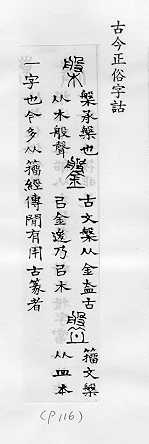 古今正俗字詁
槃
槃承槃也
从木般聲
鎜
古文槃从金盇古
㠯金後乃㠯木
盤
籒文槃
从皿本
一字也今多从籒經傳閒有用古篆者
(P116)